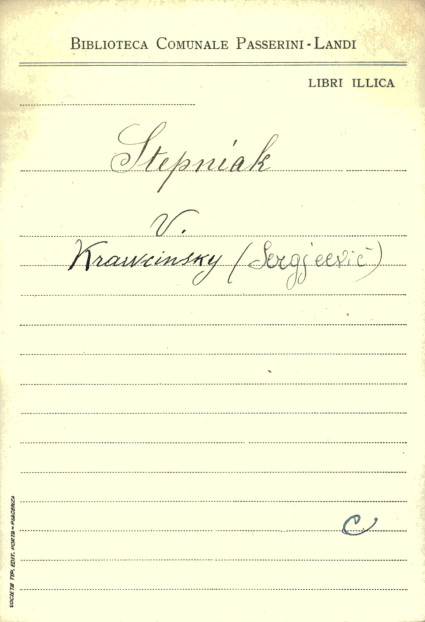 BIBLIOTECA COMUNALE PASSERINI-LANDI
LIBRI ILLICA
Stepniak
V.
Krawcinsky (Sergjeevič)
C
SOCIETÀ TIP. EDIT. PORTA - PIACENZA